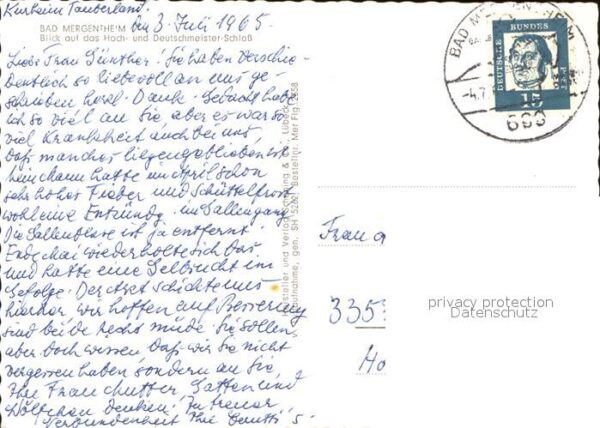 Kurheim Tauberland.
BAD MERGENTHEIM den 3. Juli 1965.
Blick auf das Hoch- und Deutschmeister-Schloß
Liebe Frau Günther. Sie haben verschie-
dentlich so liebevoll an uns ge-
schrieben herzl. Dank. Gedacht habe
ich so viel an Sie aber es war so
viel Krankheit auch bei uns,
daß manches liegengeblieben ist.
Mein Mann hatte im April schon
sehr hohes Fieber und Schüttelfrost
wohl eine Entzündg. im Gallengang
Die Gallenblase ist ja entfernt.
Ende Mai wiederholte sich das
und hatte eine Gelbsucht im
Gefolge. Der Arzt schickte uns
hierher wir hoffen auf Besserung
sind beide recht müde. Sie sollen
aber doch wissen daß wir Sie nicht
vergessen haben, sondern an Sie,
Ihre Frau Mutter, Gatten und
Wölfchen denken. In treuer
Verbundenheit Ihre
Hersteller und Verlag Schöning & Co., Lübeck
Luftaufnahme, gen. SH 5202 Bestellnr. Mer Flg. 3858
BAD MERGENTHEIM
-4.7.
699
DEUTSCHE BUNDESPOST
15
Frau G
335
Ho
privacy protection
Datenschutz